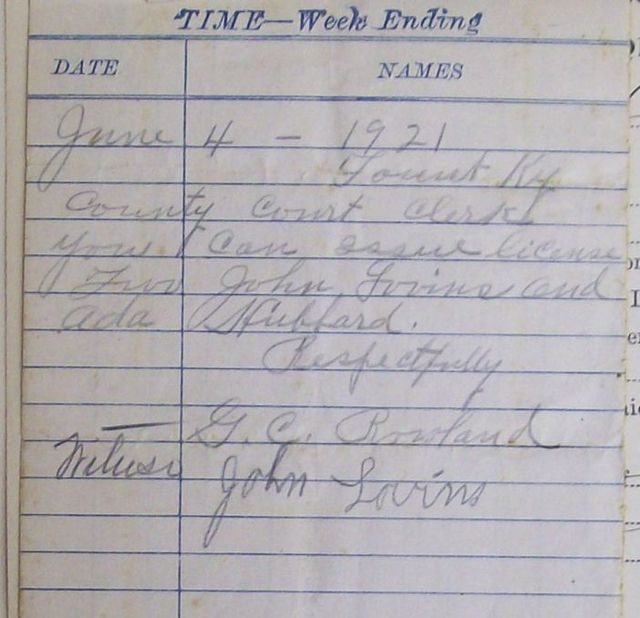 TIME—Week Ending
DATE NAMES
June 4 - 1921
Ky
County Court Clerk
you can issue license
Two John Lovins and
Ada Hubbard.
Respectfully
G. C. Rowland
John Lovins